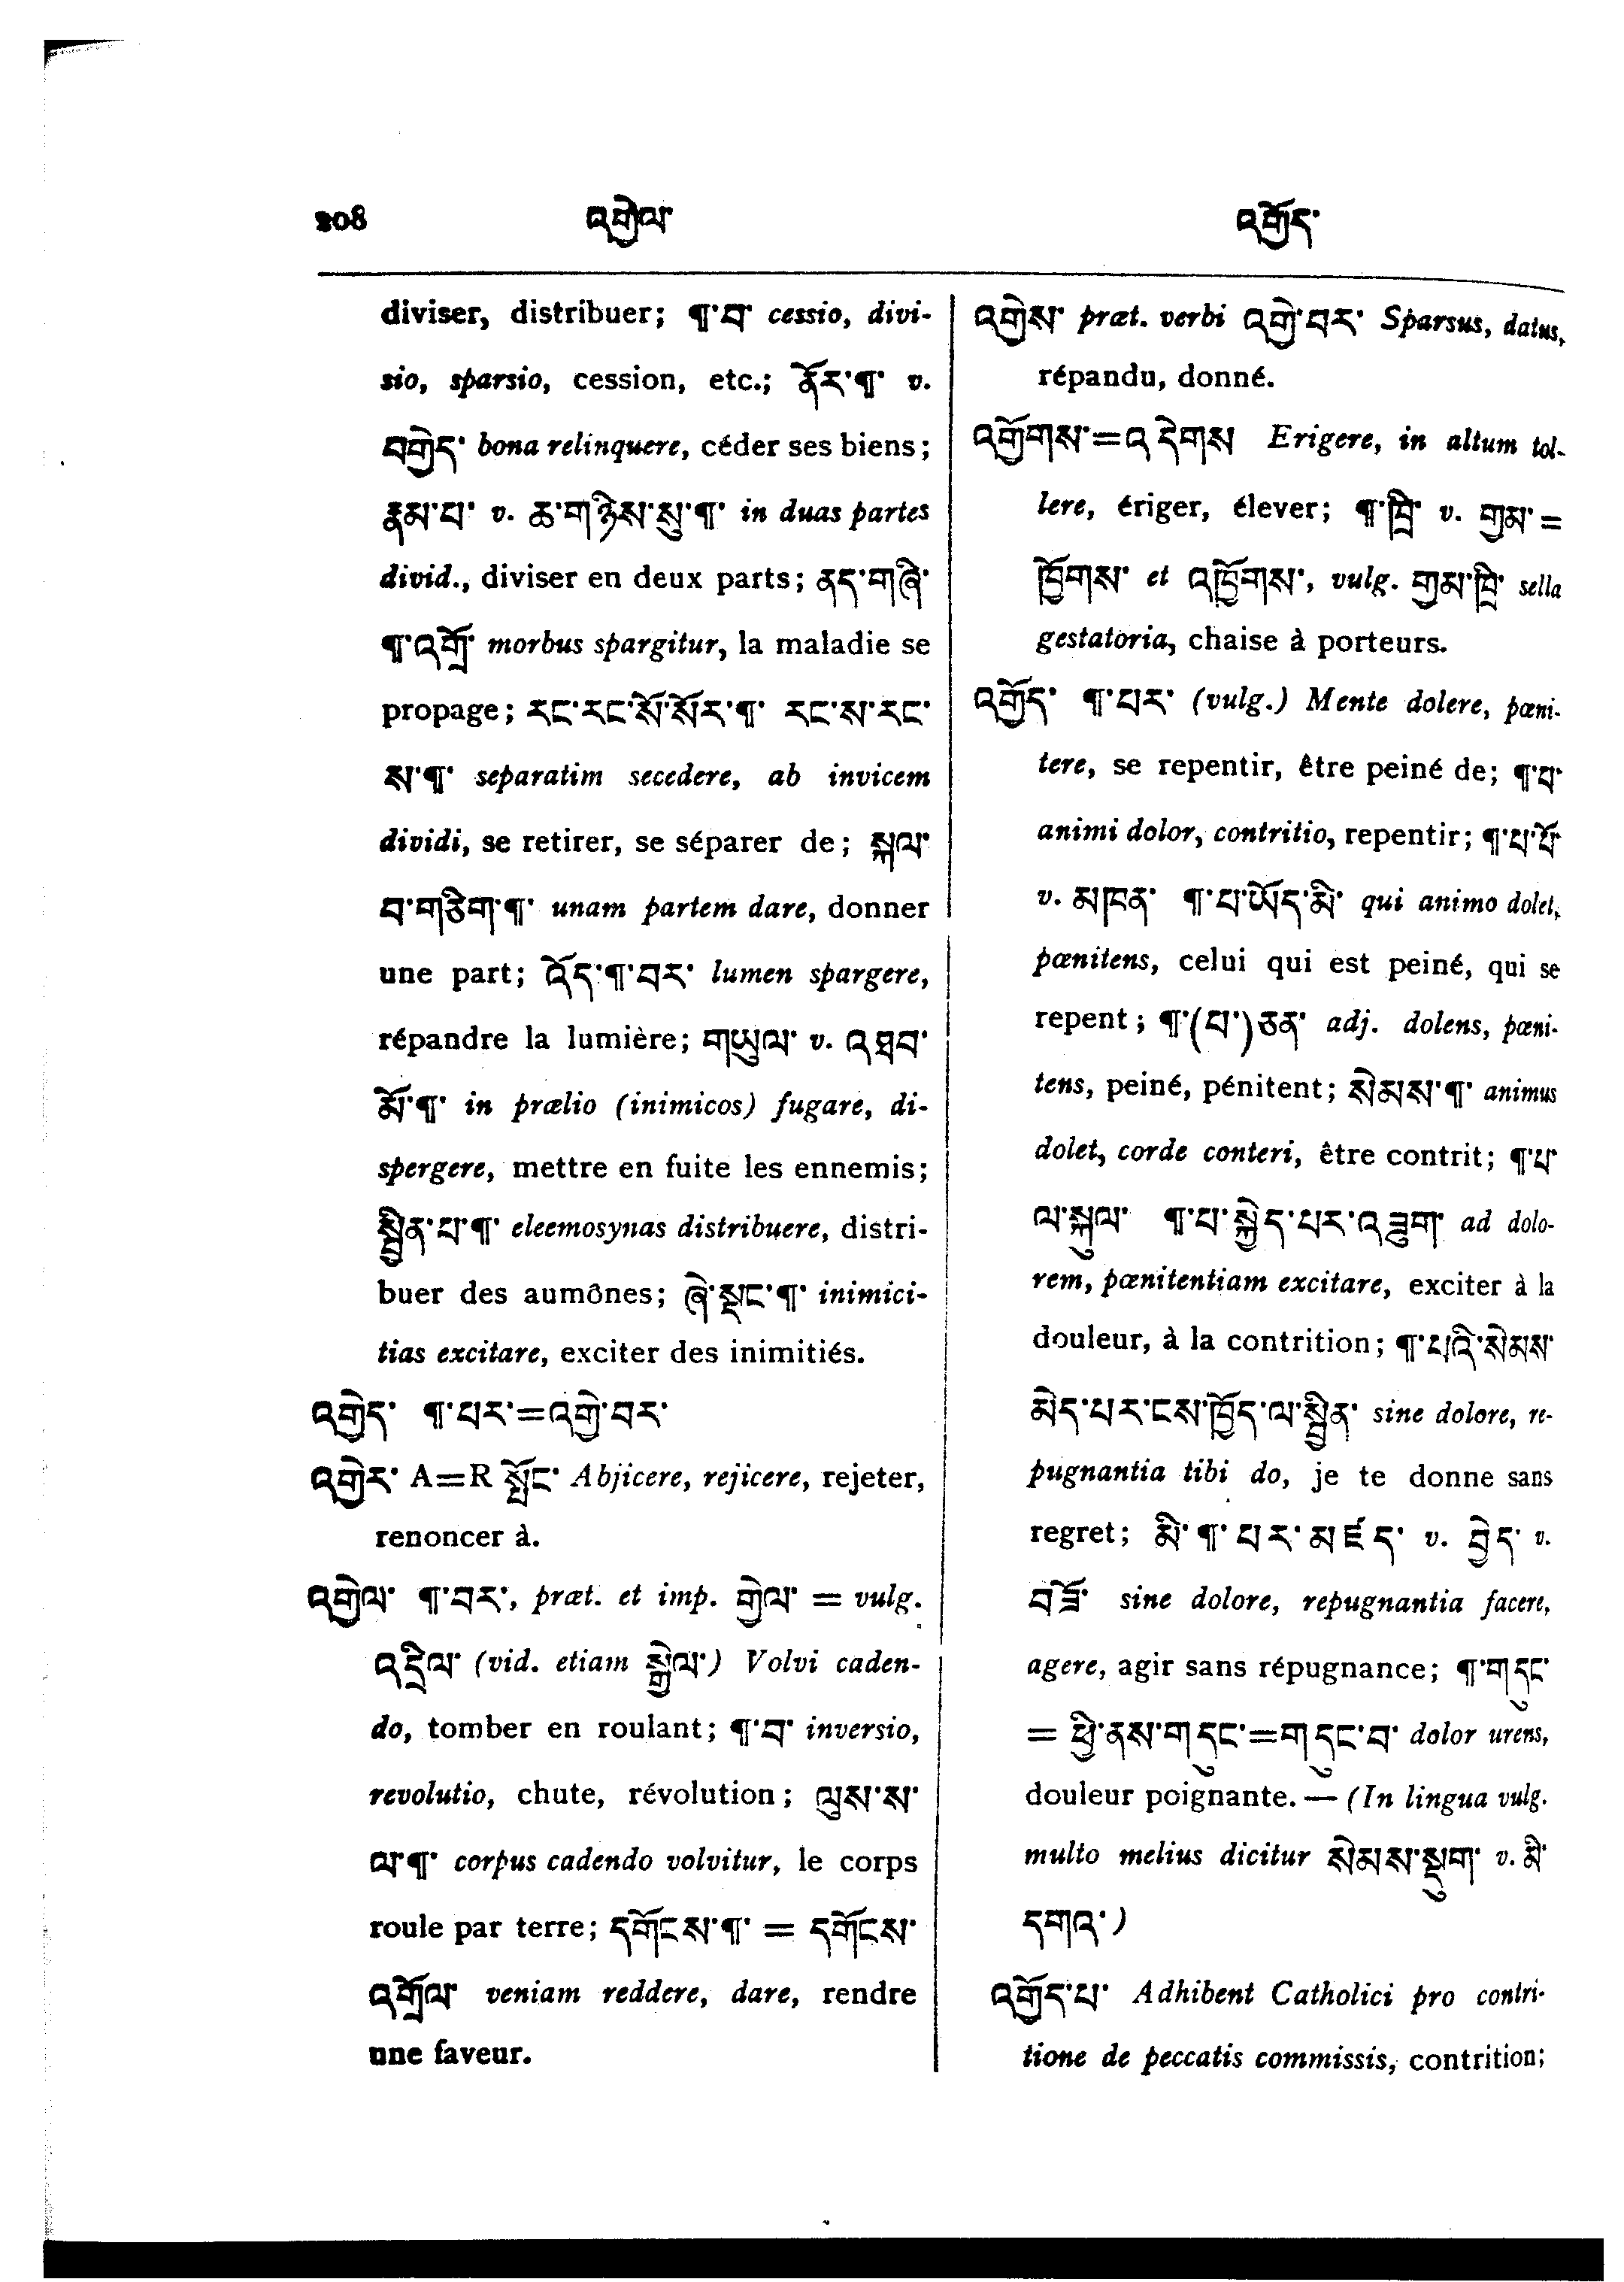 208 འགྱེལ་ འགྱོད་
diviser, distribuer; ¶་བ་ cessio, divi-
sio, sparsio, cession, etc.; ནོར་¶་ v.
བགྱེད་ bona relinquere, céder ses biens;
རྣམ་པ་ v. ཆ་གཉིས་སུ་¶་ in duas partes
divid., diviser en deux parts; ནད་གཞི་
¶་འགྲོ་ morbus spargitur, la maladie se
propage; རང་རང་སོ་སོར་¶་ རང་ས་རང་
ས་¶་ separatim secedere, ab invicem
dividi, se retirer, se séparer de; སྐལ་
བ་གཅིག་¶་ unam partem dare, donner
une part; འོད་¶་བར་ lumen spargere,
répandre la lumière; གཡུལ་ v. འཐབ་
མོ་¶་ in prælio (inimicos) fugare, di-
spergere, mettre en fuite les ennemis;
སྦྱིན་པ་¶་ eleemosynas distribuere, distri-
buer des aumônes; ཞེ་སྡང་¶་ inimici-
tias excitare, exciter des inimitiés.
འགྱེད་ ¶་པར་=འགྱེ་བར་
འགྱེར་ A=R སྤོང་ Abjicere, rejicere, rejeter,
renoncer à.
འགྱེལ་ ¶་བར་, præt. et imp. གྱེལ་ = vulg.
འདྲིལ་ (vid. etiam སྒྱེལ་) Volvi caden-
do, tomber en roulant; ¶་བ་ inversio,
revolutio, chute, révolution; ལུས་ས་
ལ་¶་ corpus cadendo volvitur, le corps
roule par terre; དགོངས་¶་ = དགོངས་
འགྲོལ་ veniam reddere, dare, rendre
une faveur.
འགྱེས་ præt. verbi འགྱེ་བར་ Sparsus, datus,
répandu, donné.
འགྱོགས་=འདེགས Erigere, in altum tol-
lere, ériger, élever; ¶་ཁྲི་ v. གྱམ་=
ཁྱོགས་ et འཁྱོགས་, vulg. གྱམ་ཁྲི་ sella
gestatoria, chaise à porteurs.
འགྱོད་ ¶་པར་ (vulg.) Mente dolere, pœni-
tere, se repentir, être peiné de; ¶་པ་
animi dolor, contritio, repentir; ¶་པ་པོ་
v. མཁན་ ¶་པ་ཡོད་མི་ qui animo dolet,
pœnitens, celui qui est peiné, qui se
repent; ¶་(པ་)ཅན་ adj. dolens, pœni-
tens, peiné, pénitent; སེམས་¶་ animus
dolet, corde conteri, être contrit; ¶་པ་
ལ་སྐུལ་ ¶་པ་སྐྱེད་པར་འཇུག་ ad dolo-
rem, pœnitentiam excitare, exciter à la
douleur, à la contrition; ¶་པའི་སེམས་
མེད་པར་ངས་ཁྱོད་ལ་སྦྱིན་ sine dolore, re-
pugnantia tibi do, je te donne sans
regret; མི་¶་པར་མཛད་ v. བྱེད་ v.
བཟོ་ sine dolore, repugnantia facere,
agere, agir sans répugnance; ¶་གདུང་
= ཕྱི་ནས་གདུང་=གདུང་བ་ dolor urens,
douleur poignante. — (In lingua vulg.
multo melius dicitur སེམས་སྡུག་ v. མི་
དགའ་)
འགྱོད་པ་ Adhibent Catholici pro contri-
tione de peccatis commissis, contrition;